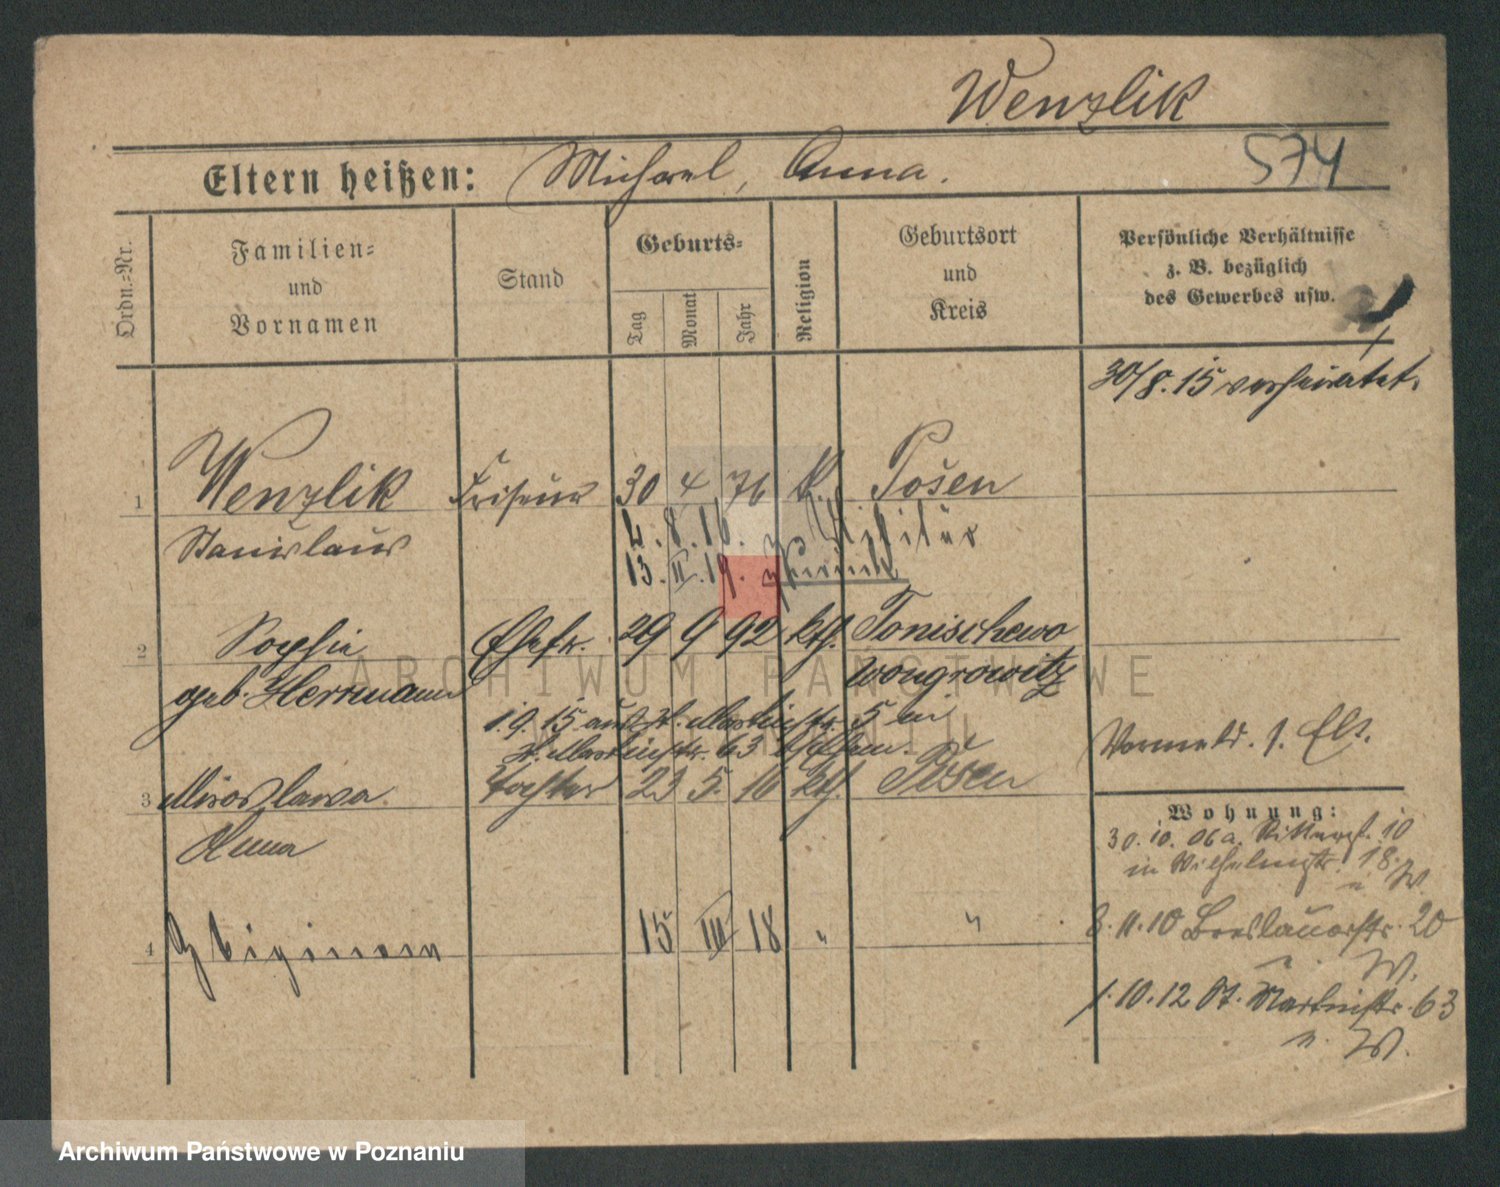 Wenzlik
Eltern heißen: Michael, Anna.
574
Ordn.-Nr.
Familien-
und
Vornamen
Stand
Geburts-
Tag
Monat
Jahr
Religion
Geburtsort
und
Kreis
Persönliche Verhältnisse
z. B. bezüglich
des Gewerbes usw.
30/8.15 verheiratet.
1 Wenzlik Friseur 30 4 76 k. Posen
Stanislaus
4. 8. 16. z. Militär
13. II. 19. zurück
2 Sophie Ehefr. 29 9 92 kth. Tonischewo
geb. Herrmann Wongrowitz
1.9.15 aus St. Martinstr. 5 in
St. Martinstr. 63 b/Ehem.
Vormeld. s. Elt.
3 Miroslawa Tochter 23 5. 16 kth. Posen
Anna
4 15 III 18 " "
Wohnung:
30. 10. 06 a. Ritterst. 10
in Wilhelmstr. 18.
n W.
8. 11. 10 Breslauerstr. 20
n. W.
1. 10. 12 St. Martinstr. 63
n. W.
ARCHIWUM PAŃSTWOWE
W POZNANIU
Archiwum Państwowe w Poznaniu